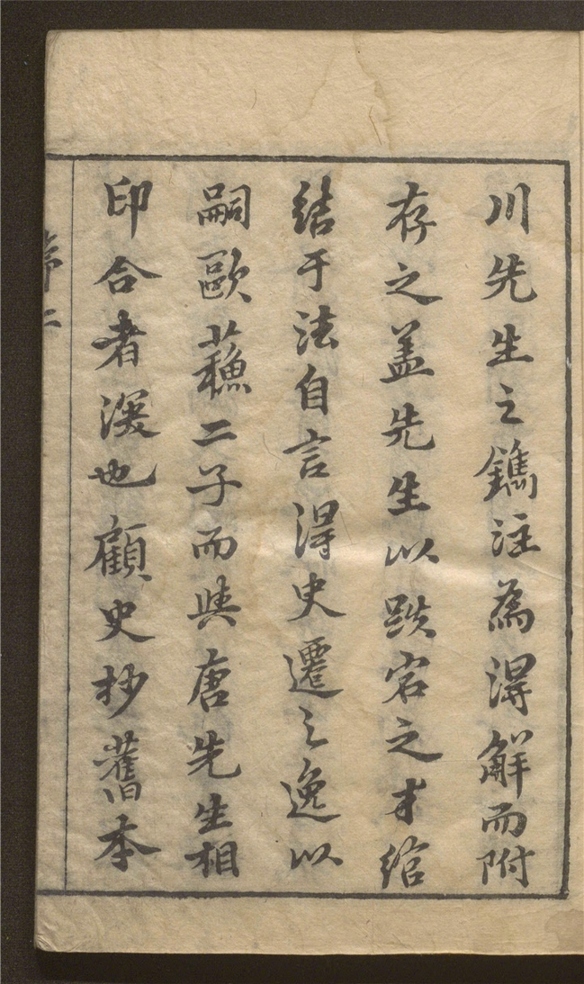 川先生之鐫註為得解而附
存之盖先生以跌宕之才綰
結于法自言得史遷之逸以
嗣歐蘓二子而與唐先生相
印合者深也顧史抄舊本
序二